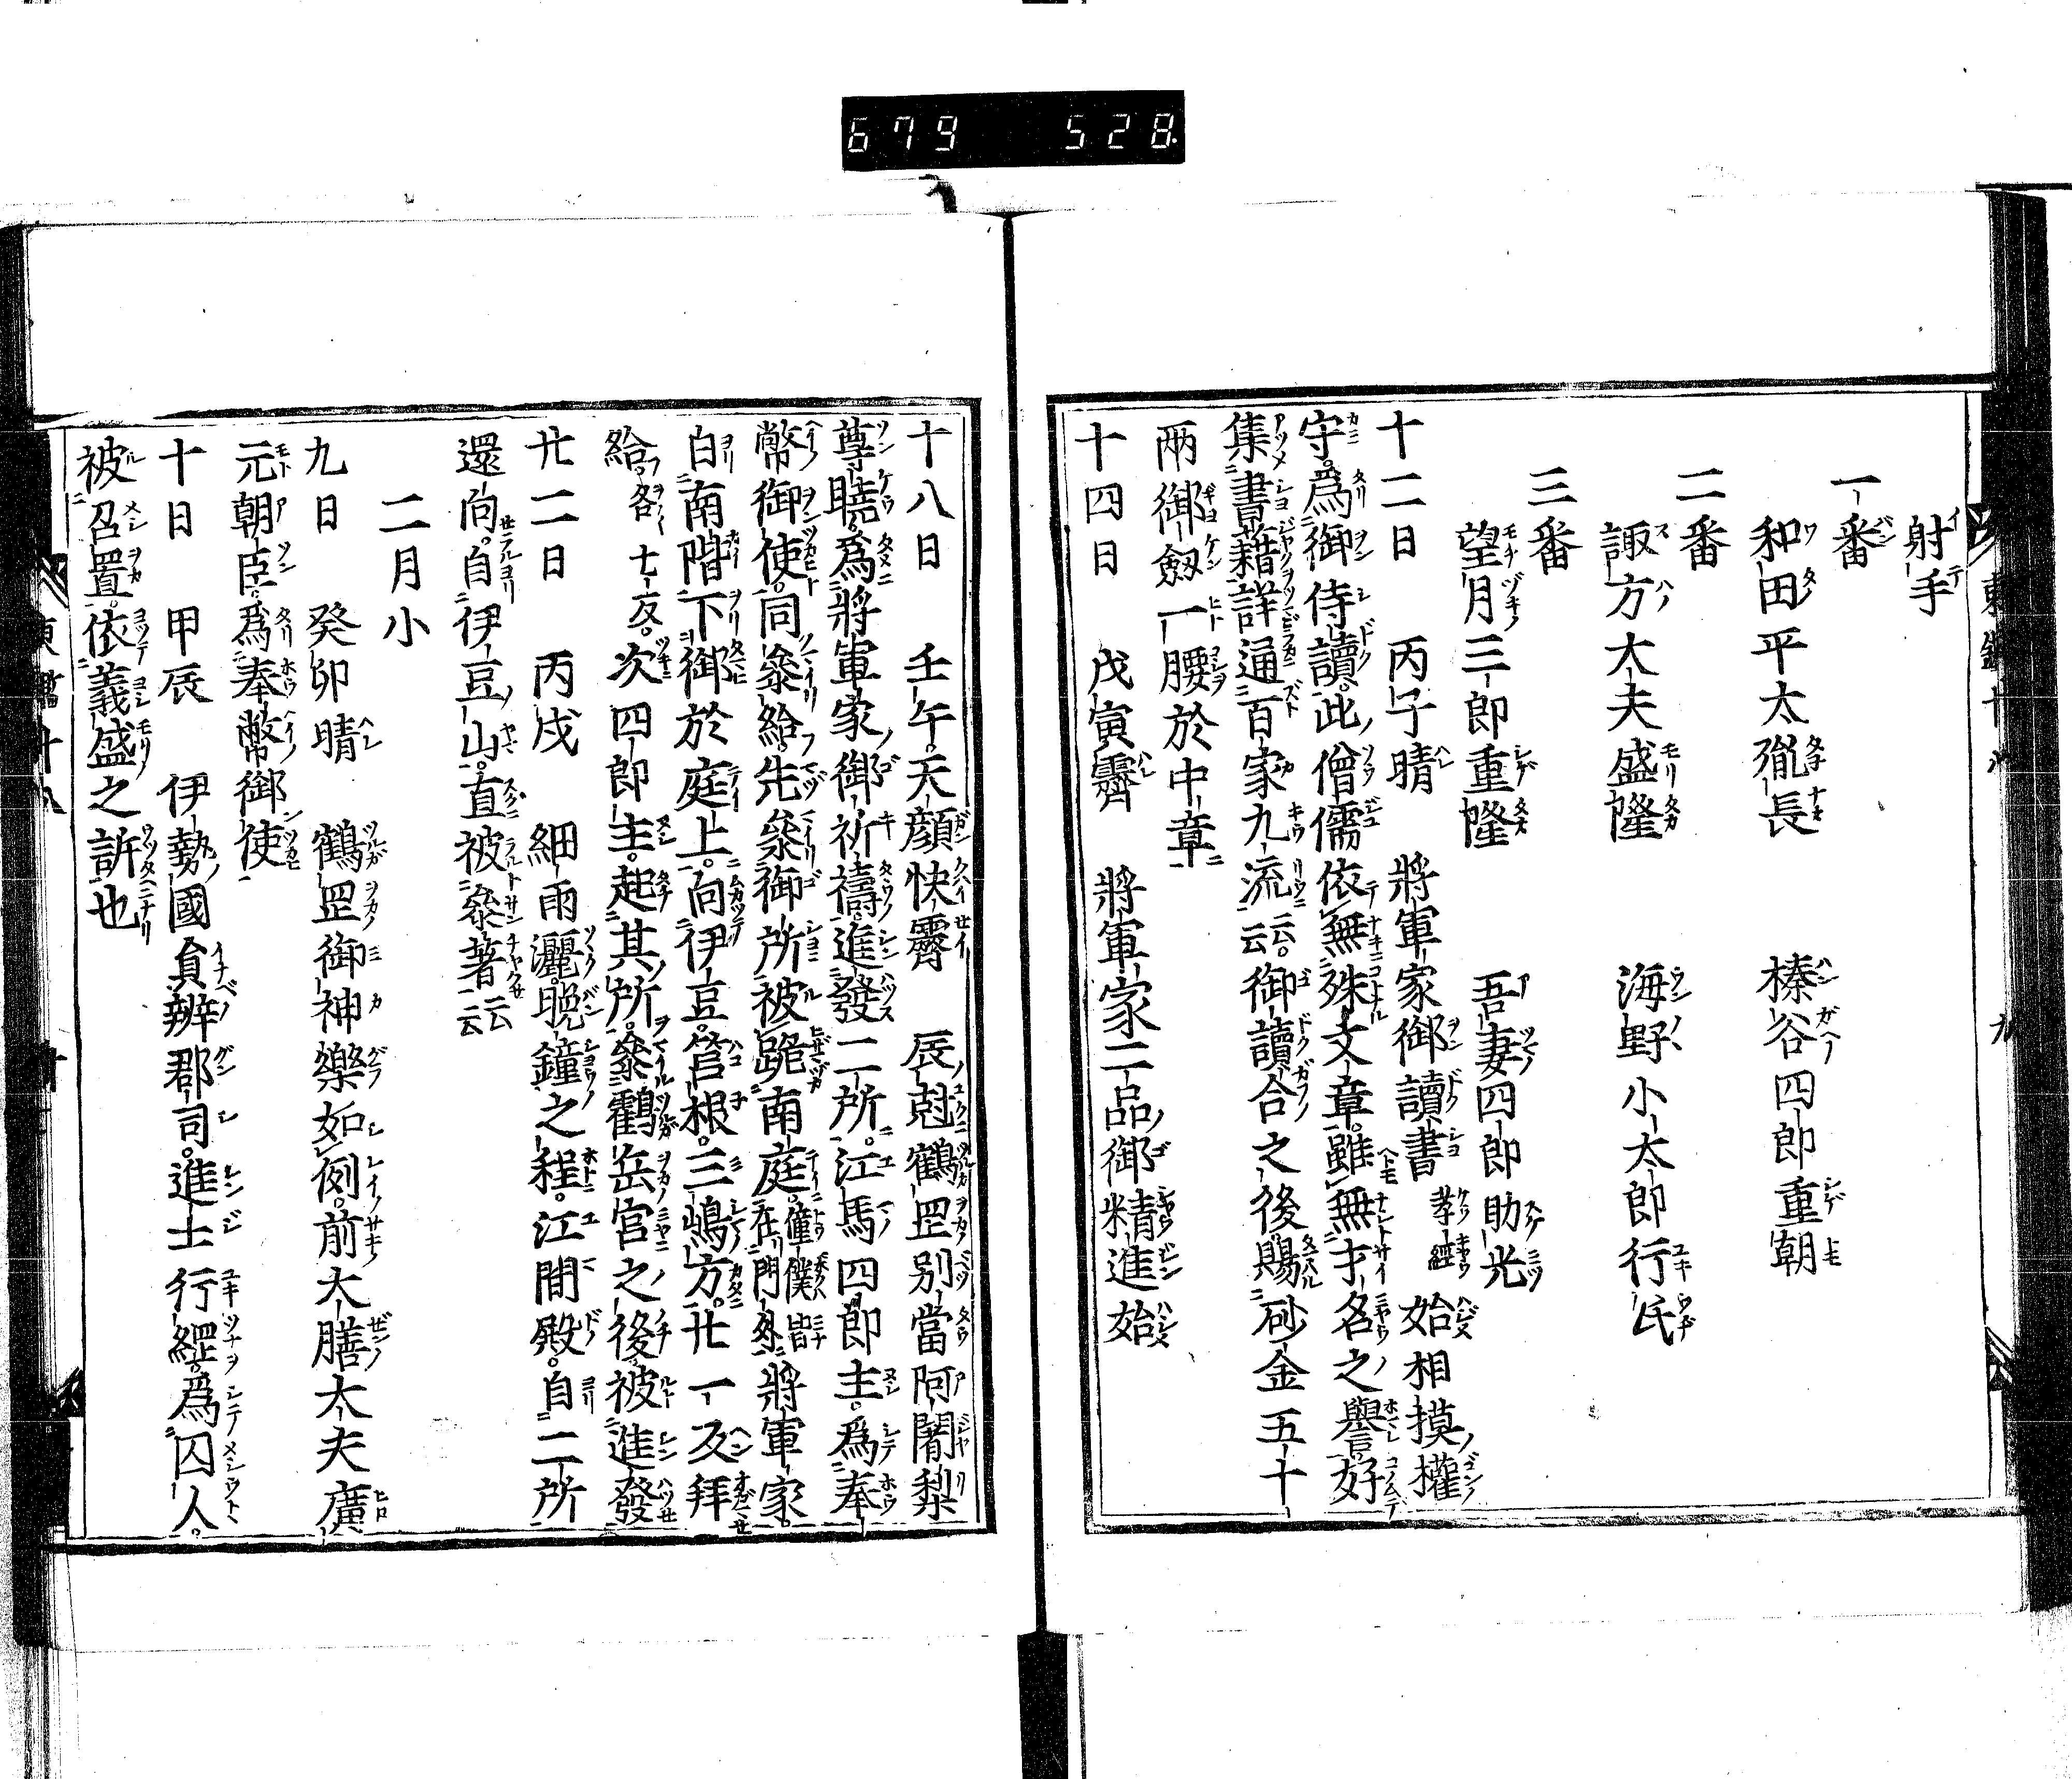 679 528
射手
一番
和田平太胤長 榛谷四郎重朝
二番
諏方大夫盛隆 海野小太郎行氏
三番
望月三郎重隆 吾妻四郎助光
十二日 丙子晴 將軍家御讀書孝經始相摸權
守爲御侍讀此僧儒依無殊文章雖無才名之譽好
集書籍詳通百家九流云云御讀合之後賜砂金五十
兩御劔一腰於中章
十四日 戊寅霽 將軍家二品御精進始
十八日 壬午天顔快霽 辰尅鶴罡別當阿闍梨
尊曉爲將軍家御祈禱進發二所江馬四郎主爲奉
幣御使同參給先參御所被跪南庭僮僕皆在門外將軍家
自南階下御於庭上向伊豆筥根三嶋方廿一反拜
給各七反次四郎主起其所參鶴岳宮之後被進發
廿二日 丙戌 細雨灑晩鐘之程江間殿自二所
還向自伊豆山直被參著云云
二月小
九日 癸卯晴 鶴罡御神樂如例前大膳大夫廣
元朝臣爲奉幣御使
十日 甲辰 伊勢國員辨郡司進士行綱爲囚人
被召置依義盛之訴也